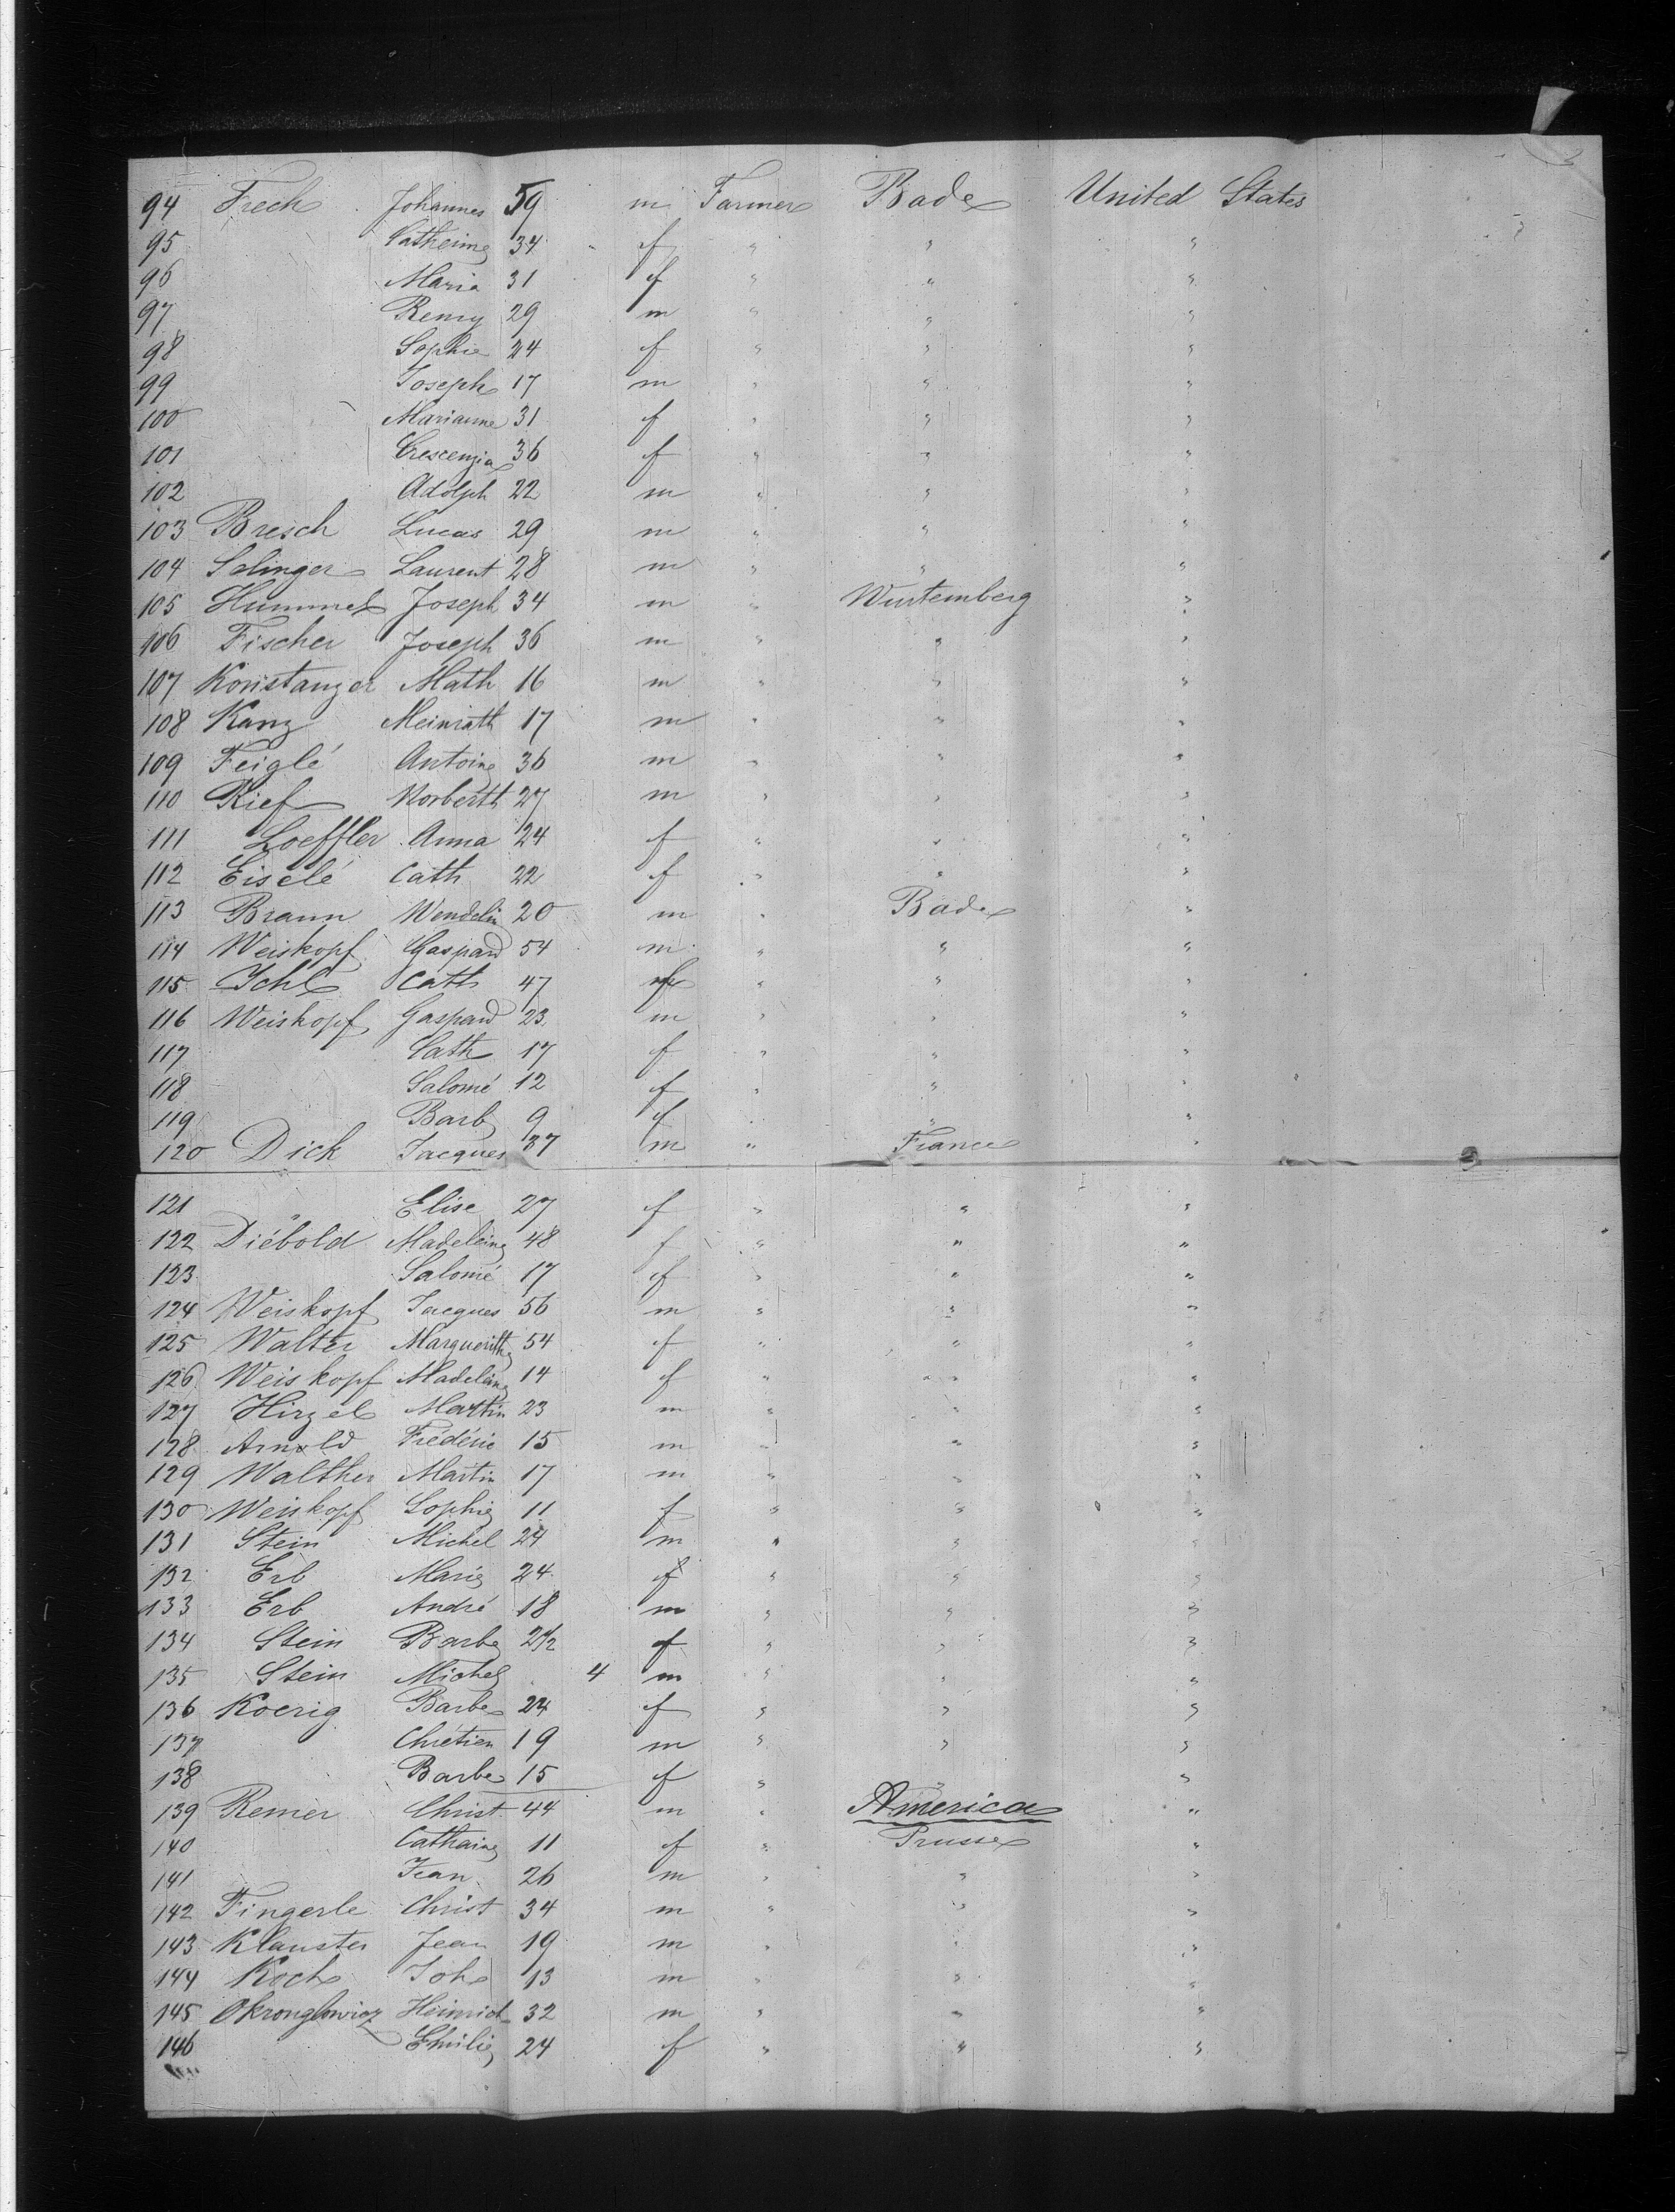 94 Frech Johannes 59 m Farmer Bade United States
95 Catherine 34 f " " "
96 Maria 31 f " " "
97 Remy 29 m " " "
98 Sophie 24 f " " "
99 Joseph 17 m " " "
100 Marianne 31 f " " "
101 Crescenzia 36 f " " "
102 Adolph 22 m " " "
103 Bresch Lucas 29 m " " "
104 Salinger Laurent 28 m " " "
105 Hummel Joseph 34 m " Wurtemberg "
106 Fischer Joseph 36 m " " "
107 Konstanzer Math 16 m " " "
108 Kanz Meinrath 17 m " " "
109 Feiglé Antoine 36 m " " "
110 Rief Norberth 27 m " " "
111 Loeffler Anna 24 f " " "
112 Eiselé Cath 22 f " " "
113 Braun Wendelin 20 m " Bade "
114 Weiskopf Gaspard 54 m " " "
115 Ichl Cath 47 f " " "
116 Weiskopf Gaspard 23 m " " "
117 Cath 17 f " " "
118 Salomé 12 f " " "
119 Barb 9 f " " "
120 Dick Jacques 37 m " France "
121 " Elise 27 f " " "
122 Diébold Madeleine 48 f " " "
123 Salomé 17 f " " "
124 Weiskopf Jacques 56 m " " "
125 Walter Marguerithe 54 f " " "
126 Weiskopf Madeleine 14 f " " "
127 Hirzel Martin 23 m " " "
128 Arnold Frédéric 15 m " " "
129 Walther Martin 17 m " " "
130 Weiskopf Sophie 11 f " " "
131 Stein Michel 24 m " " "
132 Erb Marie 24 f " " "
133 Erb André 18 m " " "
134 Stein Barbe 2 1/2 f " " "
135 Stein Michel 4 m " " "
136 Koerig Barbe 24 f " " "
137 Chrétien 19 m " " "
138 Barbe 15 f " " "
139 Remer Christ 44 m " America "
140 Cathaine 11 f " Prusse "
141 Jean 26 m " " "
142 Fingerle Christ 34 m " " "
143 Klauster Jean 19 m " " "
144 Koch Joh 13 m " " "
145 Okronglowicz Heinrich 32 m " " "
146 Emilie 24 f " " "